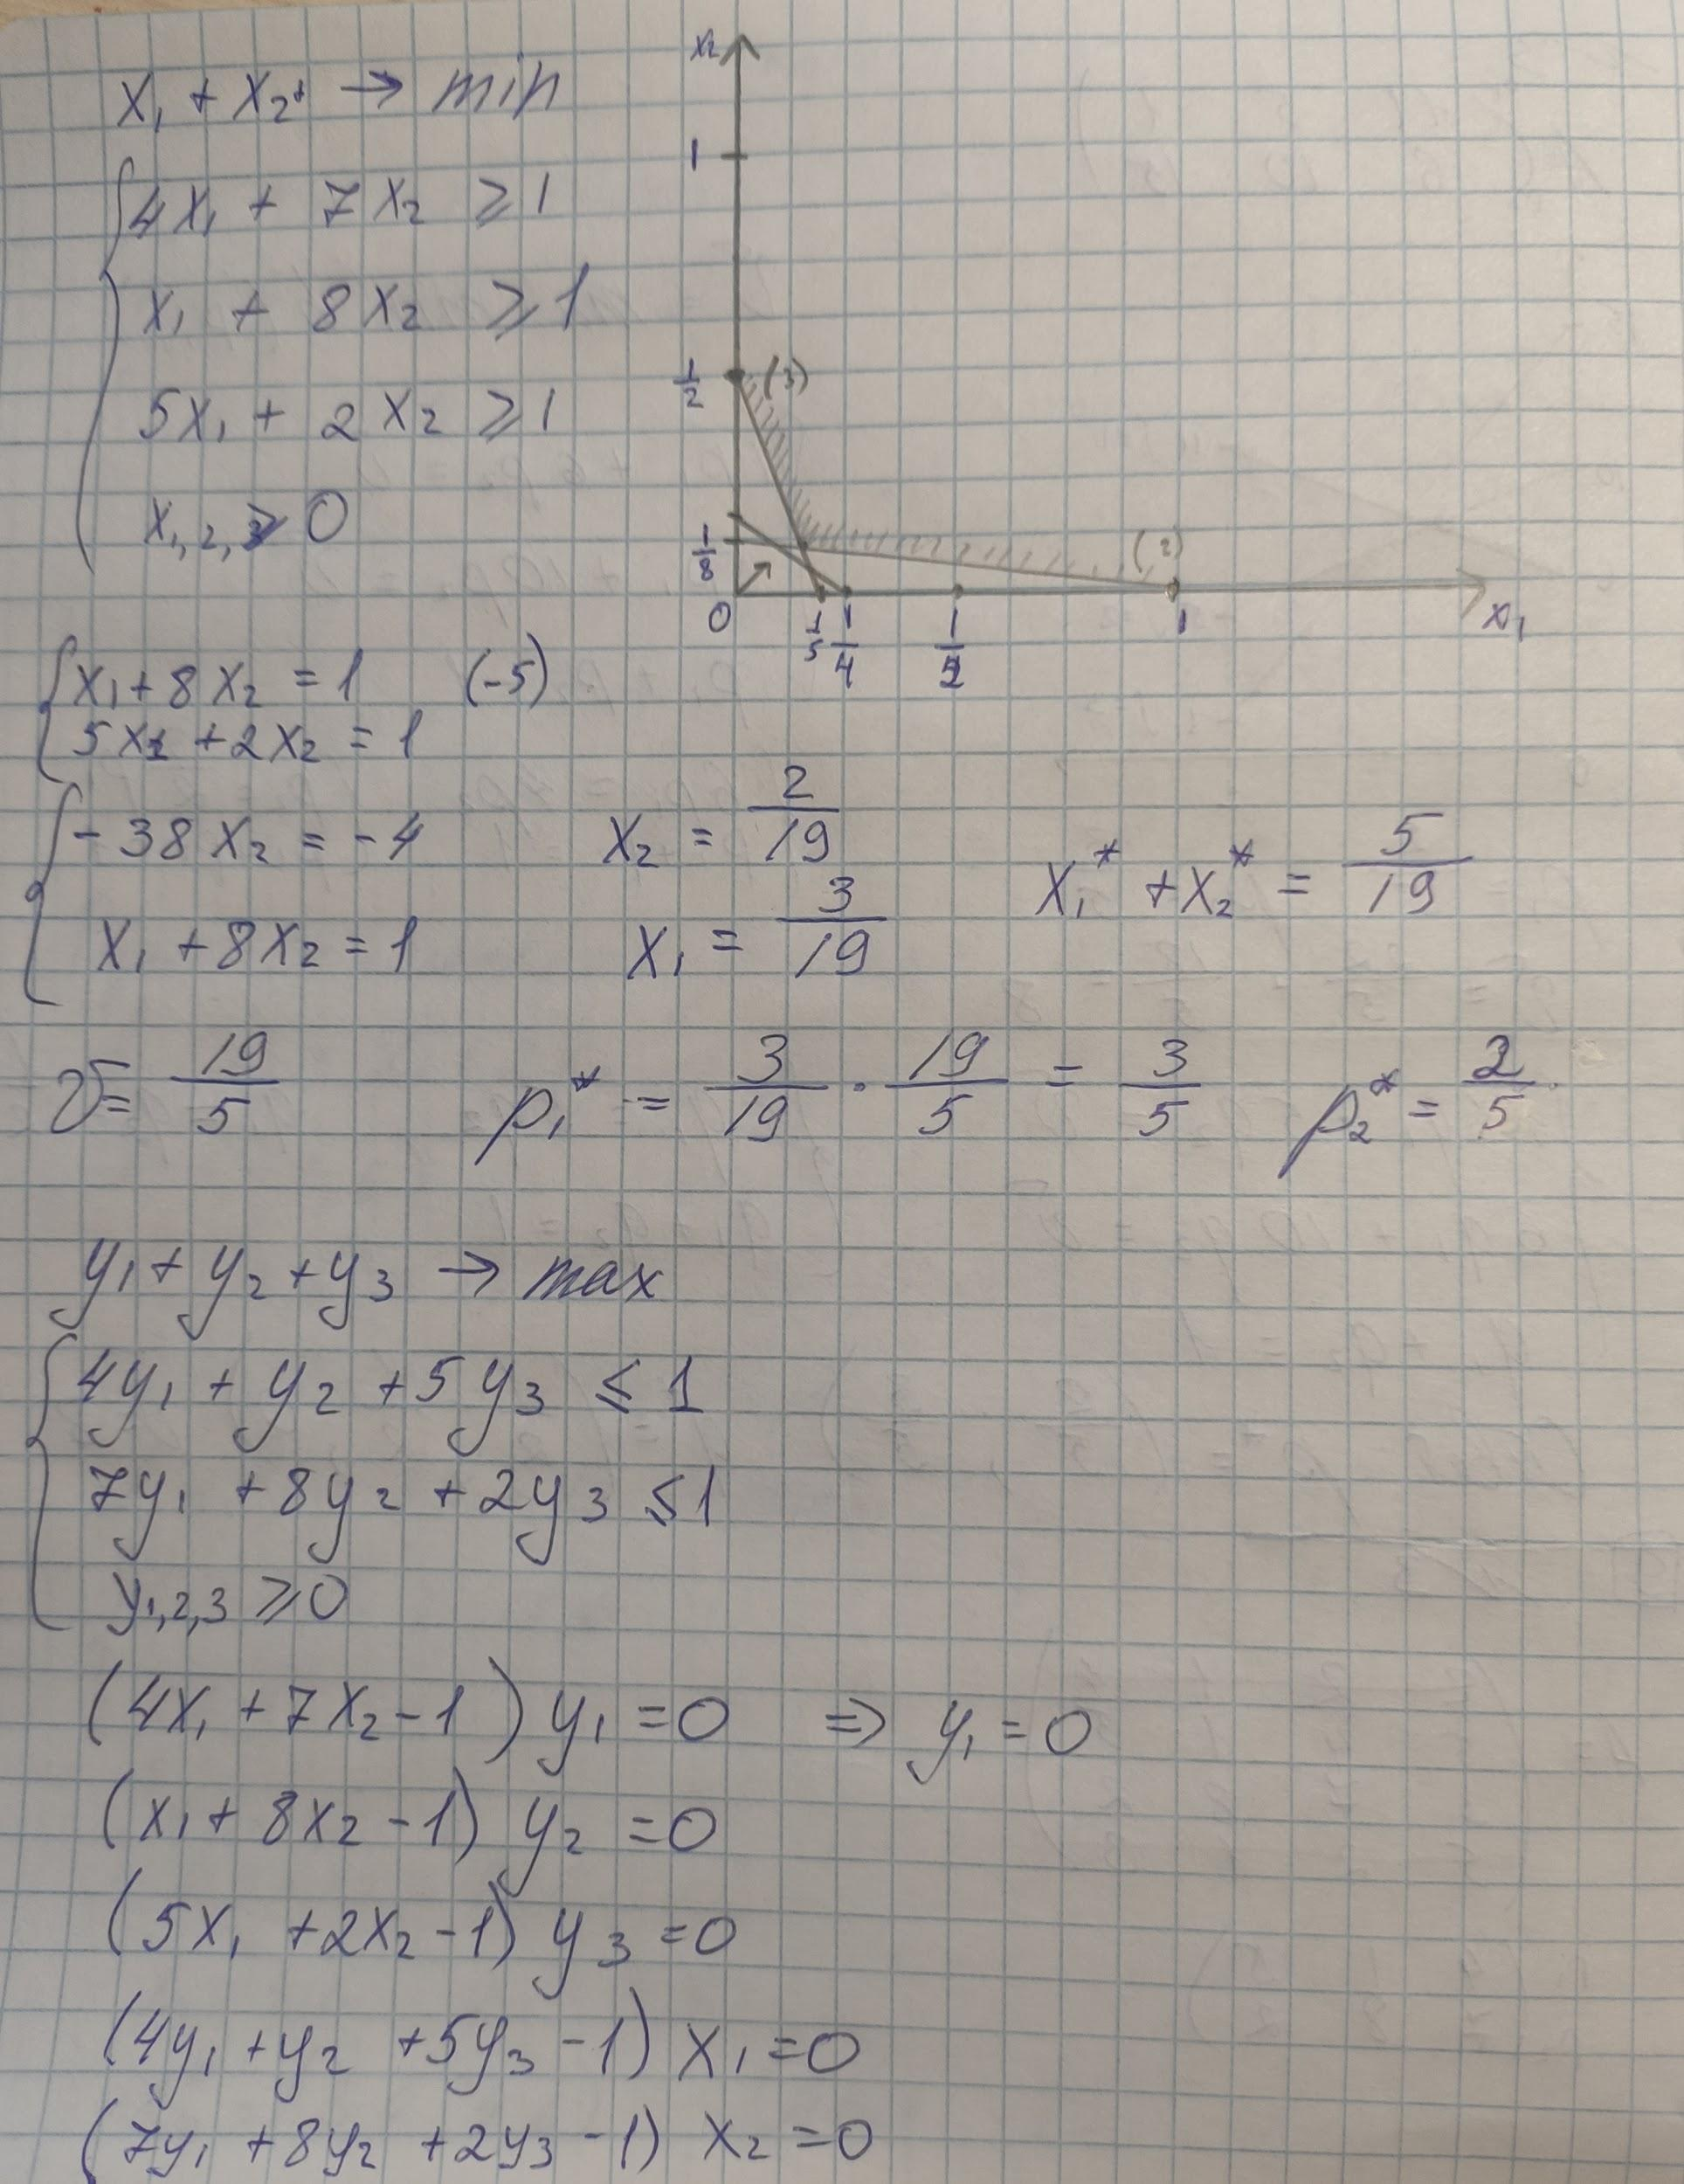 x₁ + x₂ → min
4x₁ + 7x₂ ≥ 1
x₁ + 8x₂ ≥ 1
5x₁ + 2x₂ ≥ 1
x₁,₂, ≥ 0
x₂
1
1/2
(3)
1/8
(2)
0
1/5
1/4
1/2
1
x₁
x₁ + 8x₂ = 1 (-5)
5x₁ + 2x₂ = 1
-38x₂ = -4
x₁ + 8x₂ = 1
x₂ = 2/19
x₁ = 3/19
x₁* + x₂* = 5/19
v = 19/5 p₁* = 3/19 · 19/5 = 3/5 p₂* = 2/5
y₁ + y₂ + y₃ → max
4y₁ + y₂ + 5y₃ ≤ 1
7y₁ + 8y₂ + 2y₃ ≤ 1
y₁,₂,₃ ≥ 0
(4x₁ + 7x₂ - 1) y₁ = 0 ⇒ y₁ = 0
(x₁ + 8x₂ - 1) y₂ = 0
(5x₁ + 2x₂ - 1) y₃ = 0
(4y₁ + y₂ + 5y₃ - 1) x₁ = 0
(7y₁ + 8y₂ + 2y₃ - 1) x₂ = 0